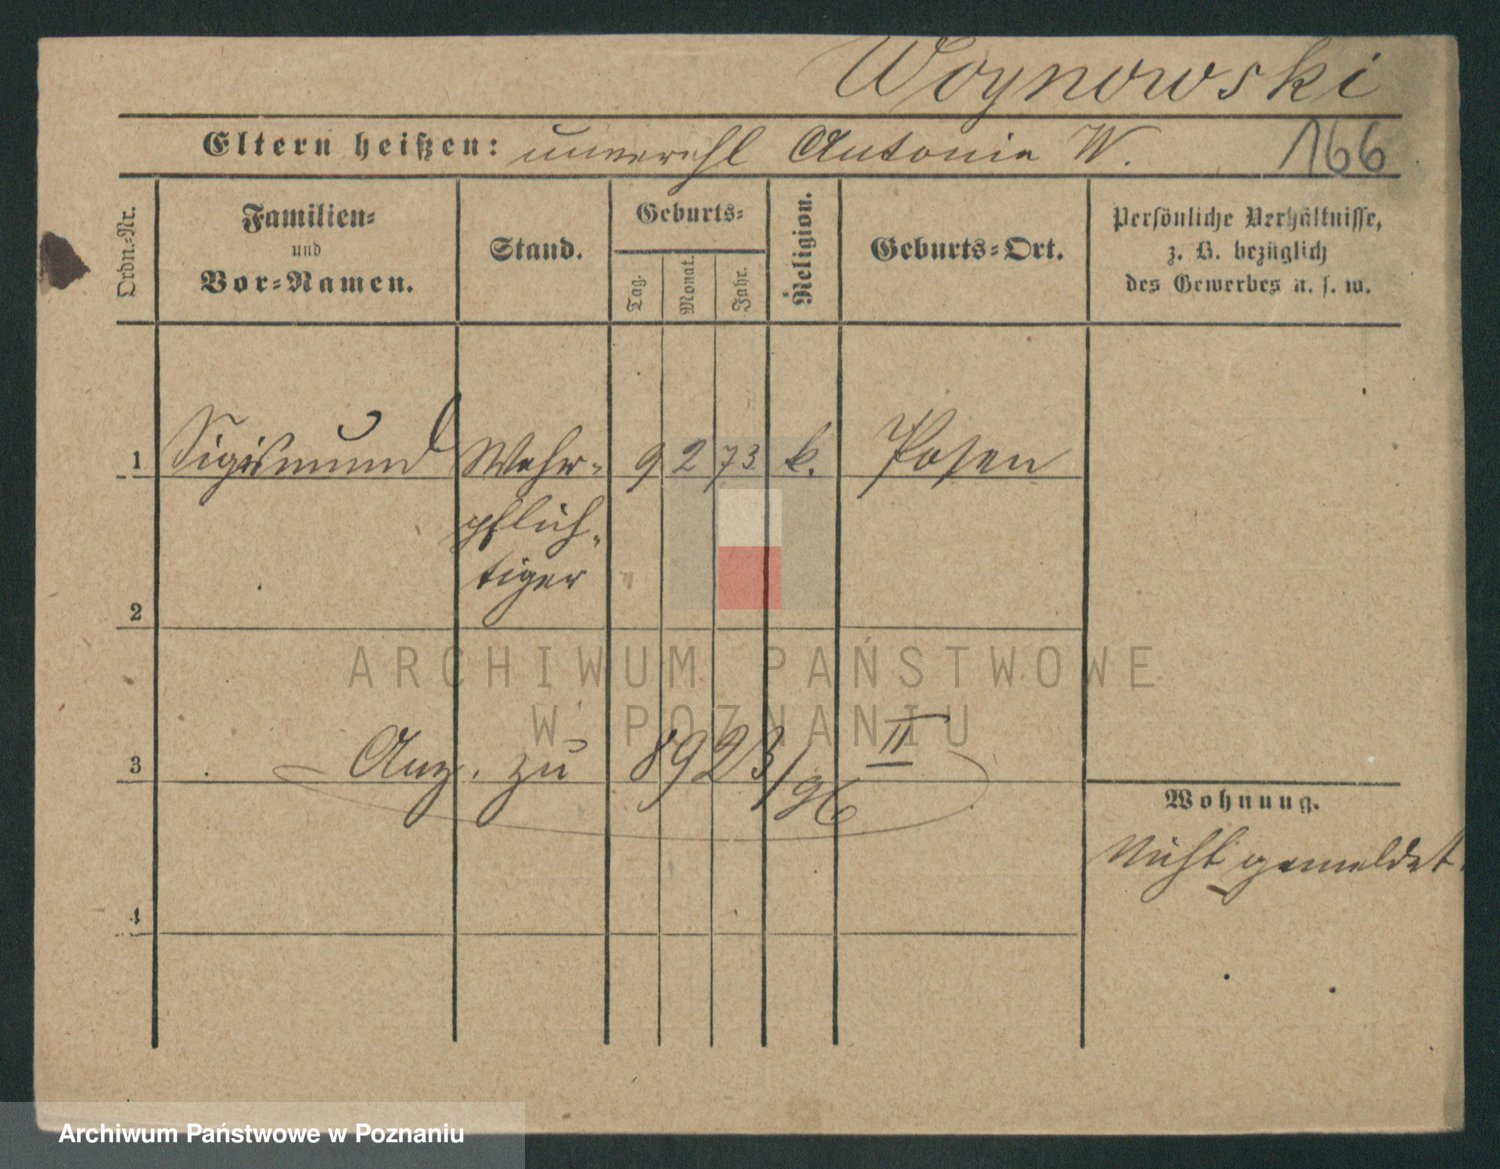 Woynowski
Eltern heißen: unverehl Antonia W. 166
Ordn.-Nr.
Familien-
und
Vor-Namen.
Stand.
Geburts-
Tag.
Monat.
Jahr.
Religion.
Geburts-Ort.
Persönliche Verhältnisse,
z. B. bezüglich
des Gewerbes u. s. w.
1 Sigismund Wehr- 9 2 73 k. Posen
pflich-
tiger
2
ARCHIWUM PAŃSTWOWE
W POZNANIU
3 Anz. zu 8923/96 II
Wohnung.
Nicht gemeldet.
4
Archiwum Państwowe w Poznaniu